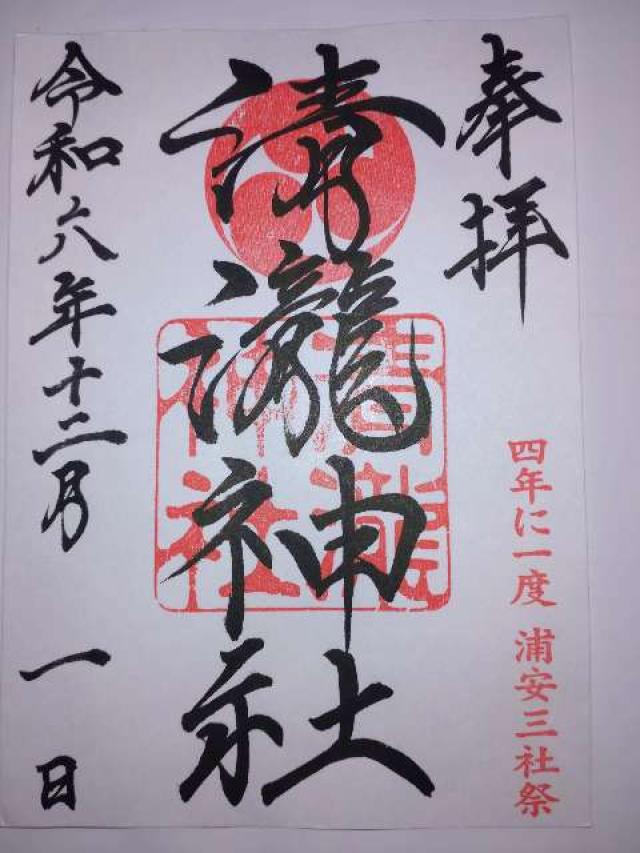 奉拝
四年に一度 浦安三社祭
清瀧神社
清瀧神社
令和六年十二月 一日